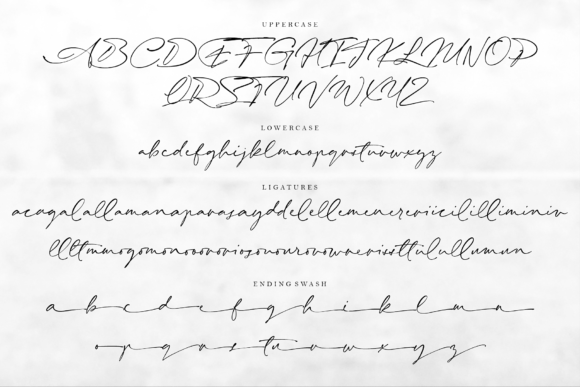 UPPERCASE
ABCDEFGHIJKLMNOP
QRSTUVWXYZ
LOWERCASE
abcdefghijklmnopqrstuvwxyz
LIGATURES
acaqalallamanaparasayddelellemenereviicililliminiv
ENDING SWASH
a b c d e f g h i k l m n
o p q r s t u v w x y z